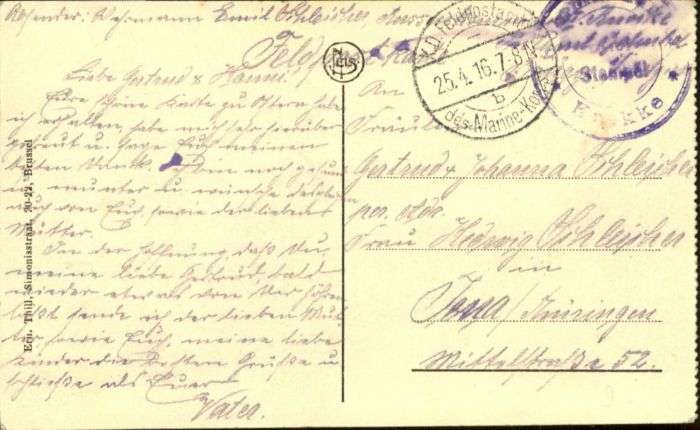 Absender: Wehrmann Emil Schleicher,
Feldpost
K.D. Feldpoststation
25.4.16.7-8N
b
des Marine-Korps
Stempel
* Knokke *
Nels
Liebe Gertrud & Hanni!
Eure schöne Karte zu Ostern habe
ich erhalten, habe mich sehr hierüber
gefreut u. sage Euch meinen
besten Dank. Bin noch gesund
u. munter u. wünsche dasselbe
auch von Euch, sowie der lieben
Mutter.
In der Hoffnung, daß Du,
meine liebe Gertrud, bald
wieder etwas von Dir hören
läßt sende ich der lieben Mut-
ter sowie Euch, meine liebe
Kinder die besten Grüße u.
schließe als Euer
Vater.
An
Fräulein
Gertrud & Johanna Schleicher
per Adr.
Frau Hedwig Schleicher
in
Jena/Thüringen
Mittelstraße 52.
Ern. Thill, Simonisstraat, 20-22, Brussel